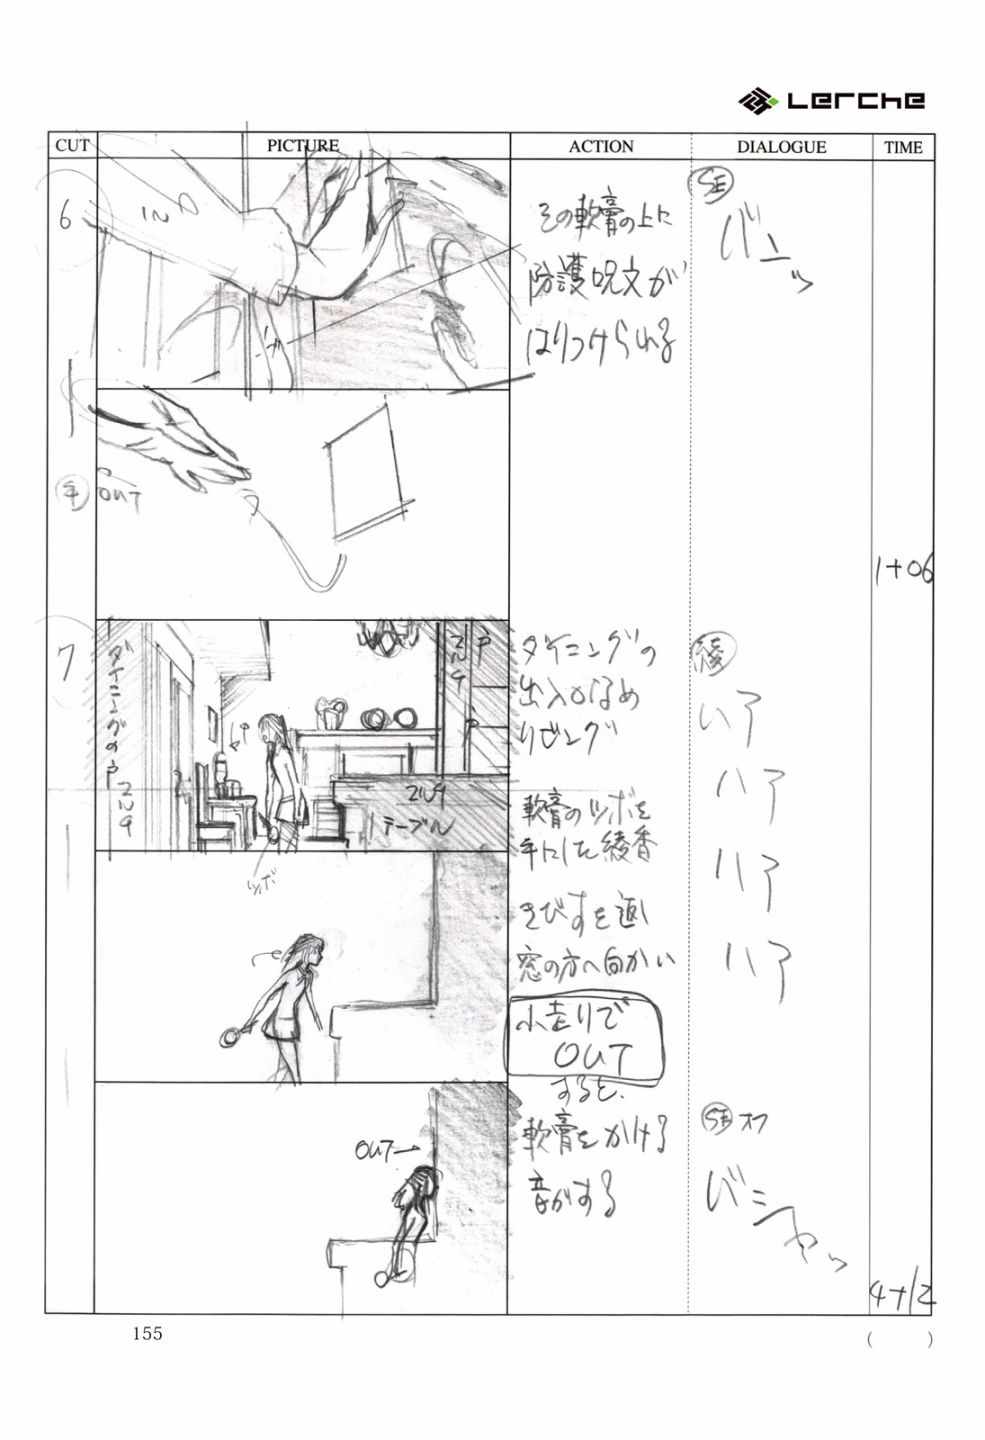 Lerche
CUT
PICTURE
ACTION
DIALOGUE
TIME
6
IN
その軟膏の上に
防護呪文が
はりつけられる
SE
バンッ
手
OUT
1+06
7
ダイニングの戸
戸
テーブル
ツボ
ダイニングの
出入口なめ
リビング
軟膏のツボを
手にした綾香
きびすを返し
窓の方へ向かい
小走りで
OUT
すると、
軟膏をかける
音がする
綾
ハア
ハア
ハア
ハア
OUT→
SE オフ
バシャッ
4+12
155
( )